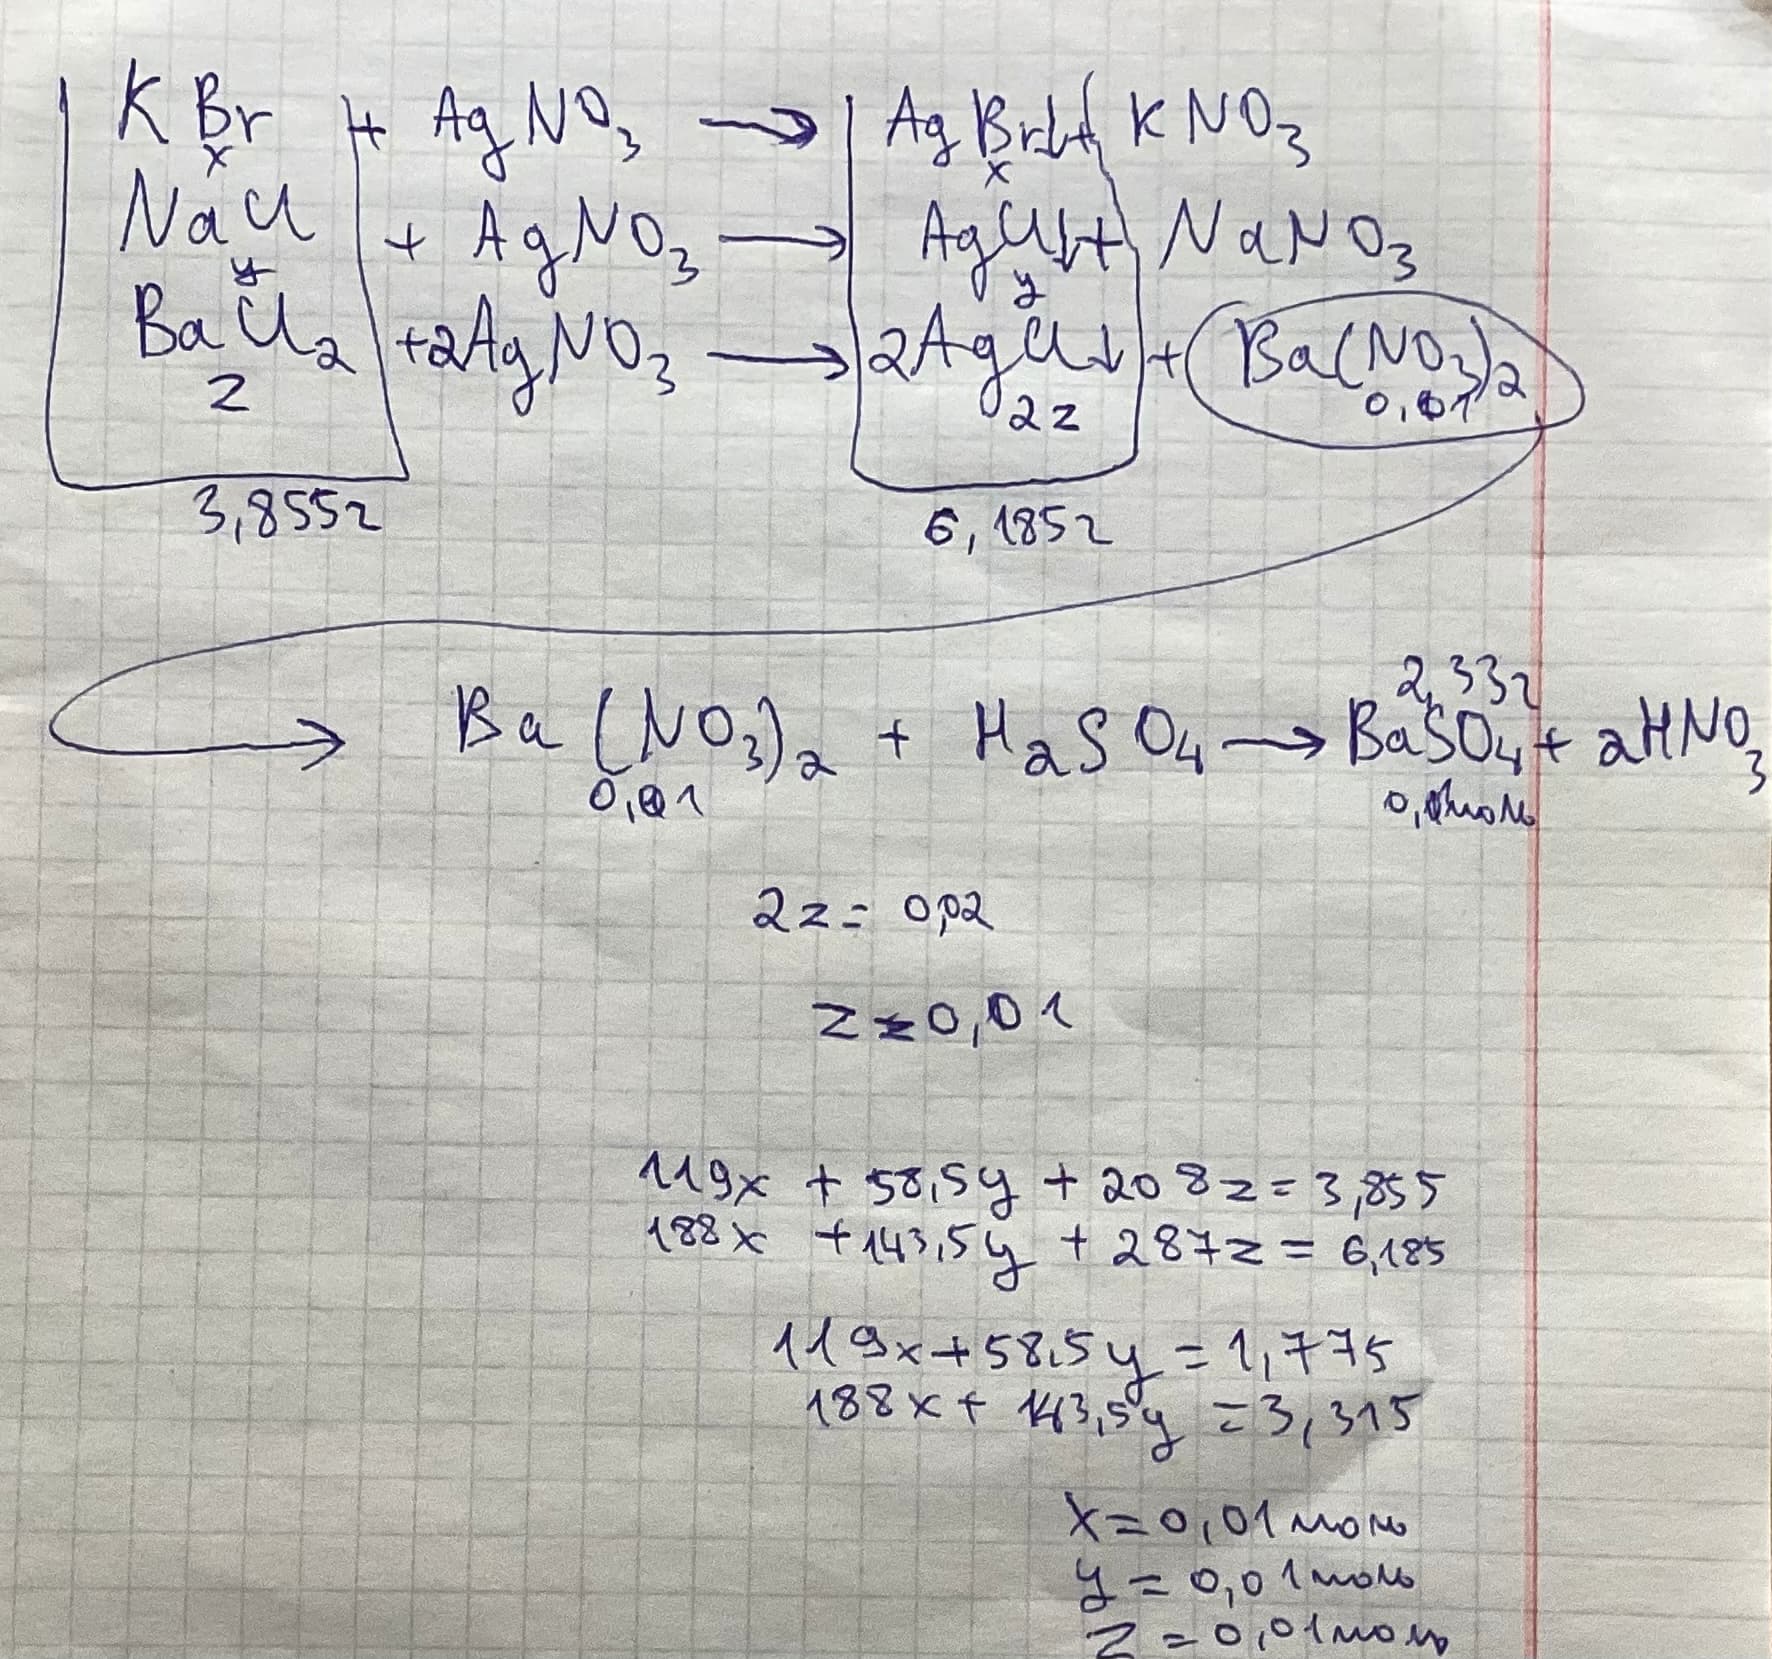 KBr + AgNO₃ → AgBr↓ + KNO₃
x x
NaCl + AgNO₃ → AgCl↓ + NaNO₃
y y
BaCl₂ + 2AgNO₃ → 2AgCl↓ + Ba(NO₃)₂
z 2z 0,01
3,855г 6,185г
2,33г
Ba(NO₃)₂ + H₂SO₄ → BaSO₄ + 2HNO₃
0,01 0,01моль
2z = 0,02
z = 0,01
119x + 58,5y + 208z = 3,855
188x + 143,5y + 287z = 6,185
119x + 58,5y = 1,775
188x + 143,5y = 3,315
x = 0,01 моль
y = 0,01 моль
z = 0,01 моль